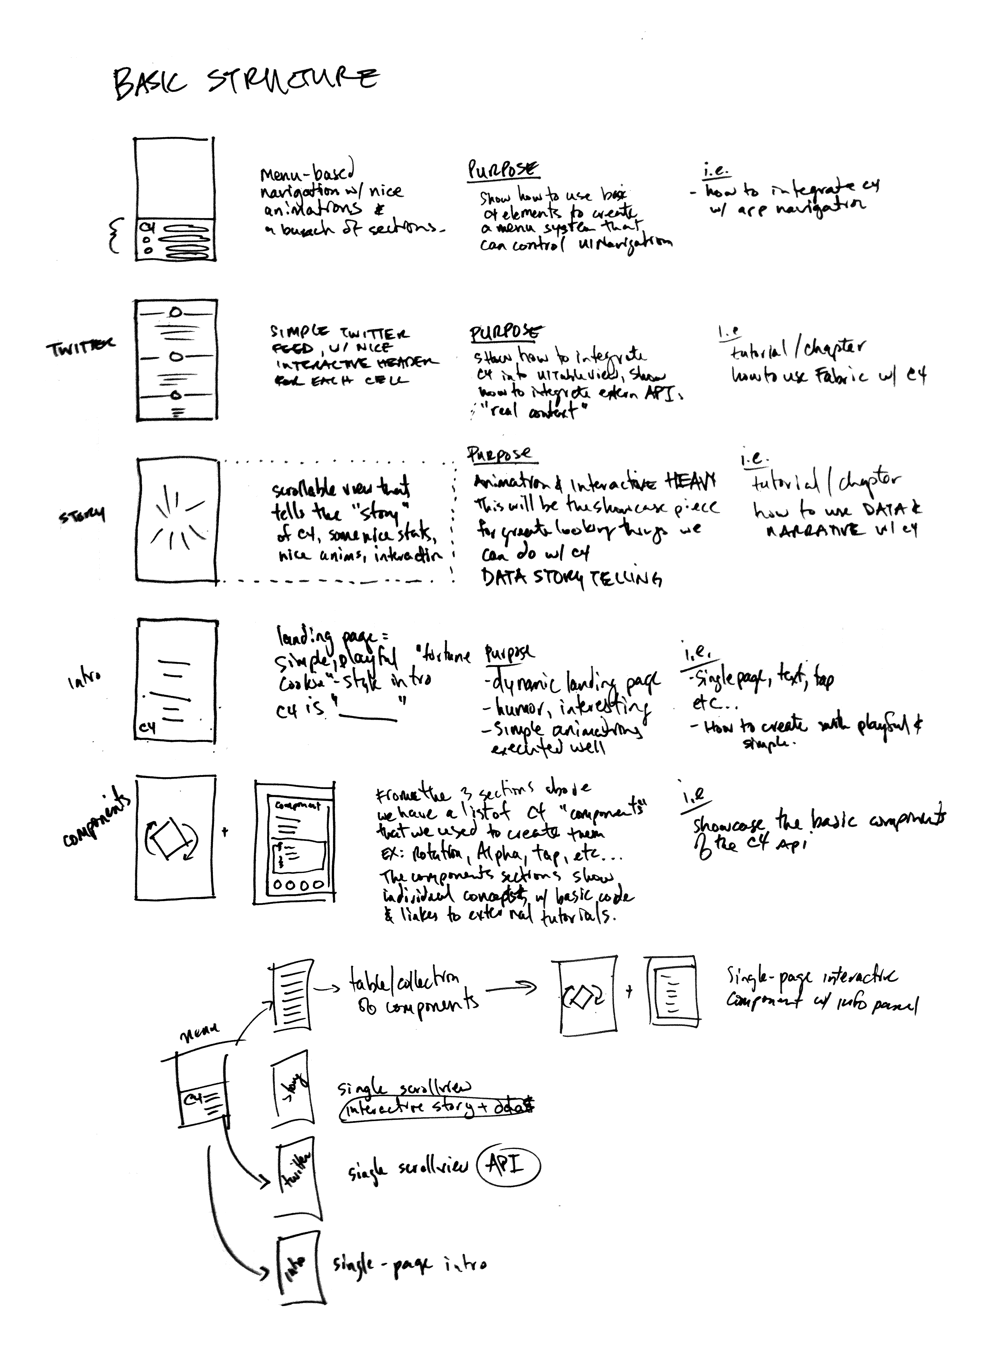 BASIC STRUCTURE
C4
Menu-based
navigation w/ nice
animations &
a bunch of sections.
PURPOSE
Show how to use basic
C4 elements to create
a menu system that
can control UINavigation
i.e.
- how to integrate C4
w/ app navigation
TWITTER
SIMPLE TWITTER
FEED, W/ NICE
INTERACTIVE HEADER
FOR EACH CELL
PURPOSE
show how to integrate
C4 into UITableView, show
how to integrate extern API.
"real context"
i.e
tutorial / chapter
how to use Fabric w/ C4
STORY
scrollable view that
tells the "story"
of C4, some nice stats,
nice anims, interaction
Purpose
Animation & interactive HEAVY
This will be the showcase piece
for great looking things we
can do w/ C4
DATA STORY TELLING
i.e.
tutorial / chapter
how to use DATA &
NARRATIVE w/ C4
Intro
C4
landing page =
simple, playful "fortune
cookie"-style intro
C4 is "_____"
Purpose
- dynamic landing page
- humor, interesting
- simple animations
executed well
i.e.
- Single page, text, tap
etc...
- How to create playful &
simple.
components
+
component
From the 3 sections above
we have a list of C4 "components"
that we used to create them
EX: Rotation, Alpha, tap, etc...
The components sections show
individual concepts, w/ basic code
& linkes to external tutorials.
i.e
showcase the basic components
of the C4 Api
menu
C4
table/collection
of components
+
Single-page interactive
component w/ info panel
story
single scrollview
interactive story + data
twitter
single scrollview API
intro
single-page intro